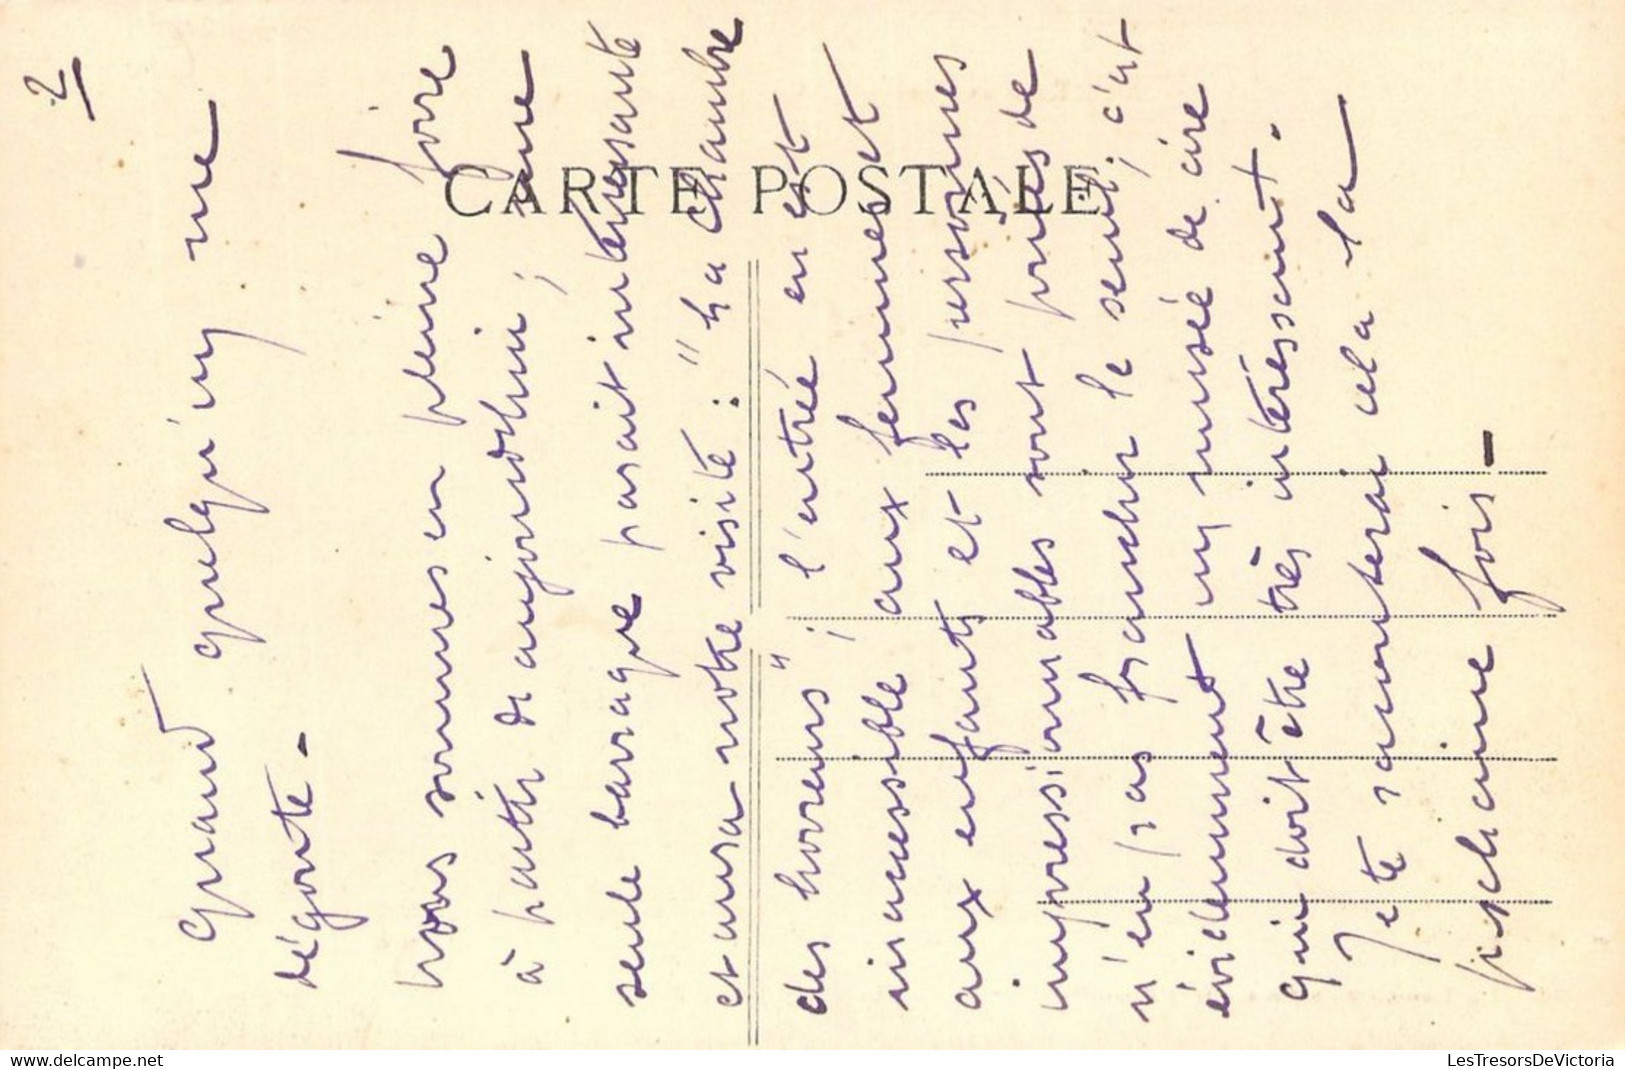 2
Quand quelqu'un me
dégoute -
Nous sommes en pleine foire
à partir de aujourd'hui ; une
seule barraque parait intéressante
et aura notre visite : "La chambre
des horreurs" ; l'entrée en est
inaccessible aux femmes et
aux enfants et les personnes
impressionnables sont priées de
n'en pas franchir le seuil ; c'est
évidemment un musée de cire
qui doit être très intéressant.
Je te raconterai cela la
prochaine fois -
CARTE POSTALE
www.delcampe.net
LesTresorsDeVictoria